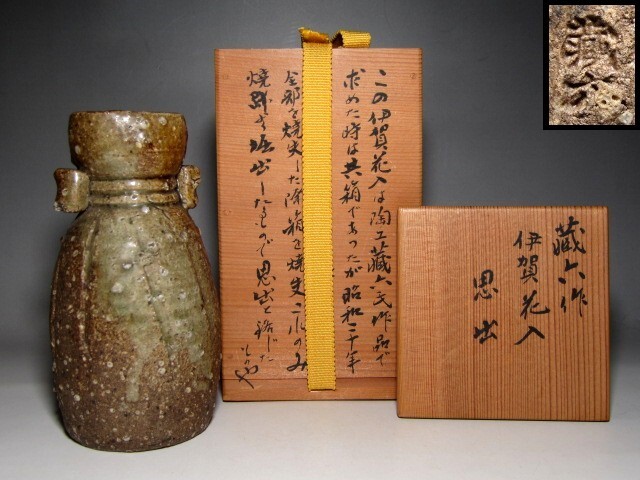 この伊賀花入は陶工藏六氏作品で
求めた時は共箱であったが昭和二十年
全部を焼失した際箱を焼失これのみ
焼跡を堀出したもので思出と銘じた
藏六作
伊賀花入
思出
藏六